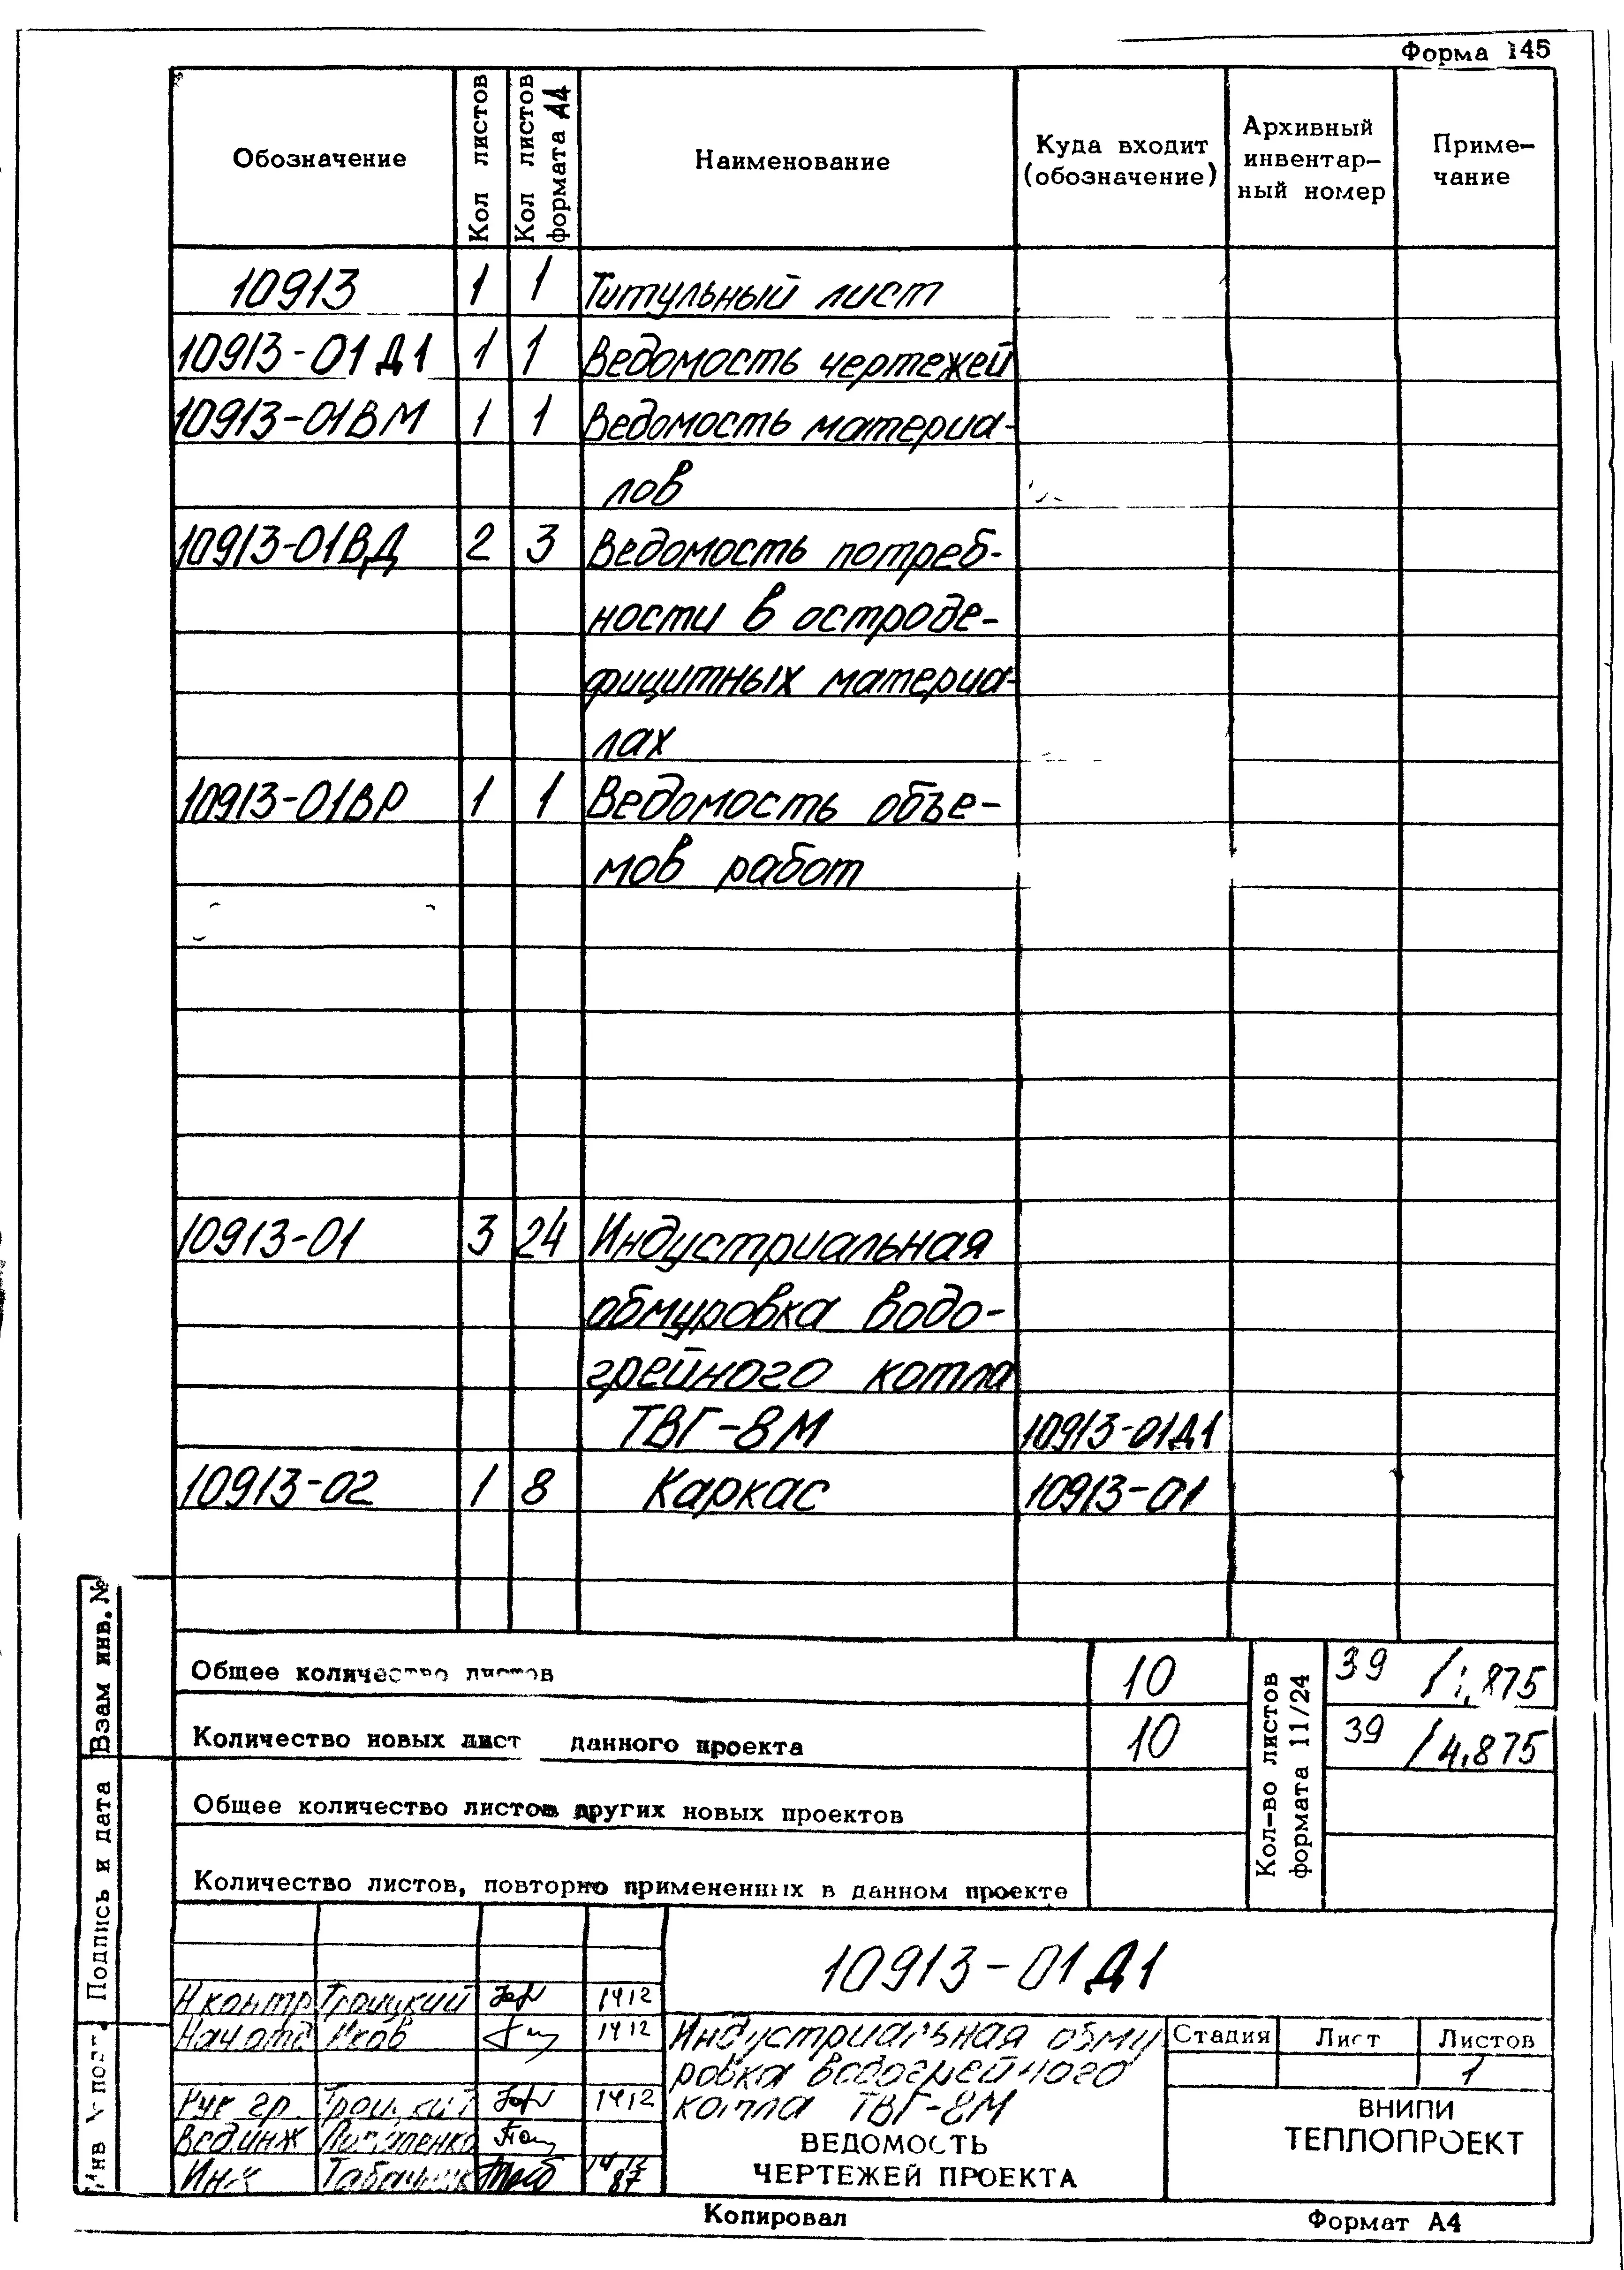 Форма 145
Обозначение
Кол листов
Кол листов формата А4
Наименование
Куда входит
(обозначение)
Архивный
инвентар-
ный номер
Приме-
чание
10913 1 1 Титульный лист
10913-01Д1 1 1 Ведомость чертежей
10913-01ВМ 1 1 Ведомость материа-
лов
10913-01ВД 2 3 Ведомость потреб-
ности в остроде-
фицитных материа-
лах
10913-01ВР 1 1 Ведомость объе-
мов работ
10913-01 3 24 Индустриальная
обмуровка водо-
грейного котла
ТВГ-8М 10913-01Д1
10913-02 1 8 Каркас 10913-01
Общее количество листов 10 39
Количество новых лист данного проекта 10 39 /4.875
Общее количество листов других новых проектов
Количество листов, повторно примененных в данном проекте
Кол-во листов
формата 11/24
Взам инв. №
Подпись и дата
10913-01Д1
Н контр Троицкий 1412
Нач отд 1412
Индустриальная обму
ровка водогрейного
котла ТВГ-8М
ВЕДОМОСТЬ
ЧЕРТЕЖЕЙ ПРОЕКТА
Рук гр. Троицкий 1412
Вед.инж
Инж 87
Стадия Лист Листов
1
ВНИПИ
ТЕПЛОПРОЕКТ
Копировал
Формат А4